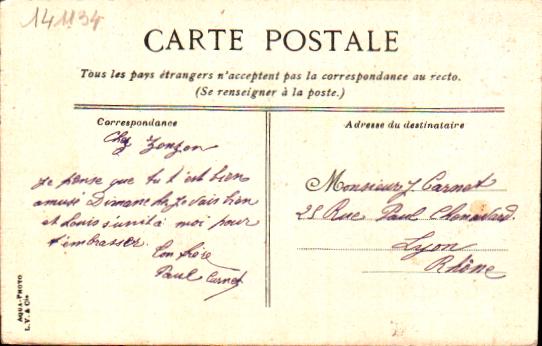 141134
CARTE POSTALE
Tous les pays étrangers n'acceptent pas la correspondance au recto.
(Se renseigner à la poste.)
Correspondance
Adresse du destinataire
Cher Zonzon
Je pense que tu t'est bien
amusé Dimanche Je vais bien
et Louis s'unit à moi pour
t'embrasser.
Ton frère
Paul Carnet
Monsieur J. Carnet
25 Rue Paul Chenavard
Lyon
Rhône
AQUA-PHOTO
L. V. & Cie